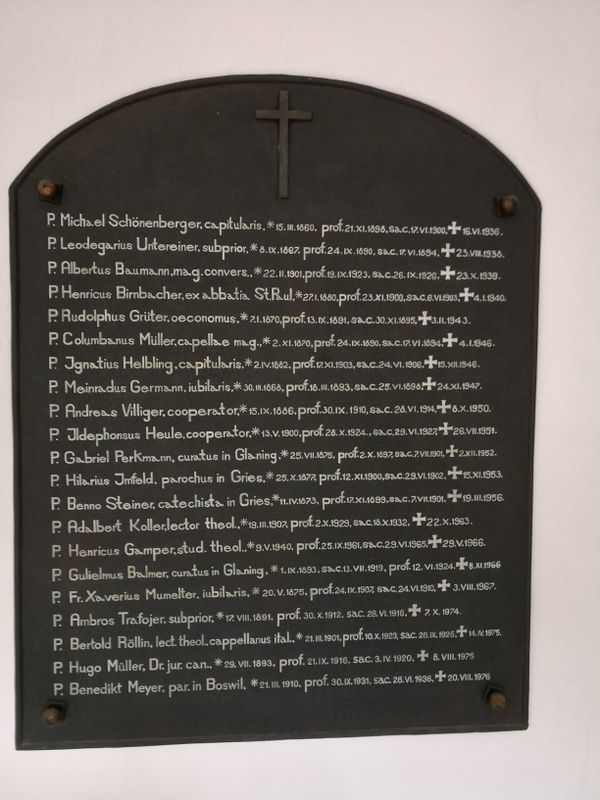 P. Michael Schönenberger, capitularis, *15.III.1860. prof. 21.XI.1898, sac. 17.VI.1900, ✠ 16.VI.1936.
P. Leodegarius Untereiner, subprior, *8.IX.1867. prof. 24.IX.1890, sac. 17.VI.1894, ✠ 23.VIII.1938.
P. Albertus Baumann, mag. convers., *22.II.1901, prof. 19.IX.1923, sac. 26.IX.1926, ✠ 23.X.1939.
P. Henricus Birnbacher, ex abbatia St. Paul, *27.I.1880, prof. 23.XI.1900, sac. 6.VI.1903, ✠ 4.I.1940.
P. Rudolphus Grüter, oeconomus, *7.I.1870, prof. 13.IX.1891, sac. 30.XI.1895, ✠ 3.II.1943.
P. Columbanus Müller, capellae mag., *2.XI.1870, prof. 24.IX.1890, sac. 17.VI.1894, ✠ 4.I.1946.
P. Jgnatius Helbling, capitularis, *2.IV.1882, prof. 17.XI.1903, sac. 24.VI.1906, ✠ 15.XII.1946.
P. Meinradus Germann, iubilaris, *30.III.1868, prof. 18.III.1893, sac. 25.VI.1898, ✠ 24.XI.1947.
P. Andreas Villiger, cooperator, *15.IX.1886, prof. 30.IX.1910, sac. 28.VI.1914, ✠ 8.X.1950.
P. Jldephonsus Heule, cooperator, *13.V.1900, prof. 28.X.1924., sac. 29.VI.1927, ✠ 26.VII.1951.
P. Gabriel Perkmann, curatus in Glaning, *25.VII.1875, prof. 2.X.1897, sac. 7.VII.1901, ✠ 2.XII.1952.
P. Hilarius Jmfeld, parochus in Gries, *25.X.1877, prof. 12.XI.1900, sac. 29.VI.1902, ✠ 15.XI.1953.
P. Benno Steiner, catechista in Gries, *11.IV.1873, prof. 17.XI.1899, sac. 7.VII.1901, ✠ 19.III.1956.
P. Adalbert Koller, lector theol., *19.III.1907, prof. 2.X.1929, sac. 18.X.1932, ✠ 22.X.1963.
P. Henricus Gamper, stud. theol., *9.V.1940, prof. 25.IX.1961, sac. 29.VI.1965, ✠ 29.V.1966.
P. Gulielmus Balmer, curatus in Glaning, *1.IX.1893, sac. 13.VII.1919, prof. 12.VI.1924, ✠ 8.XI.1966
P. Fr. Xaverius Mumelter, iubilaris, *20.V.1875, prof. 24.IX.1907, sac. 24.VI.1910, ✠ 3.VIII.1967.
P. Ambros Trafojer, subprior, *17.VIII.1891, prof. 30.X.1912, sac. 28.VI.1918, ✠ 7.X.1974.
P. Bertold Röllin, lect. theol., cappellanus ital., *21.III.1901, prof. 10.X.1923, sac. 26.IX.1926, ✠ 14.IV.1975.
P. Hugo Müller, Dr. jur. can., *29.VII.1893, prof. 21.IX.1916, sac. 3.IV.1920. ✠ 8.VIII.1975
P. Benedikt Meyer, par. in Boswil, *21.III.1910, prof. 30.IX.1931, sac. 28.VI.1936, ✠ 20.VIII.1976